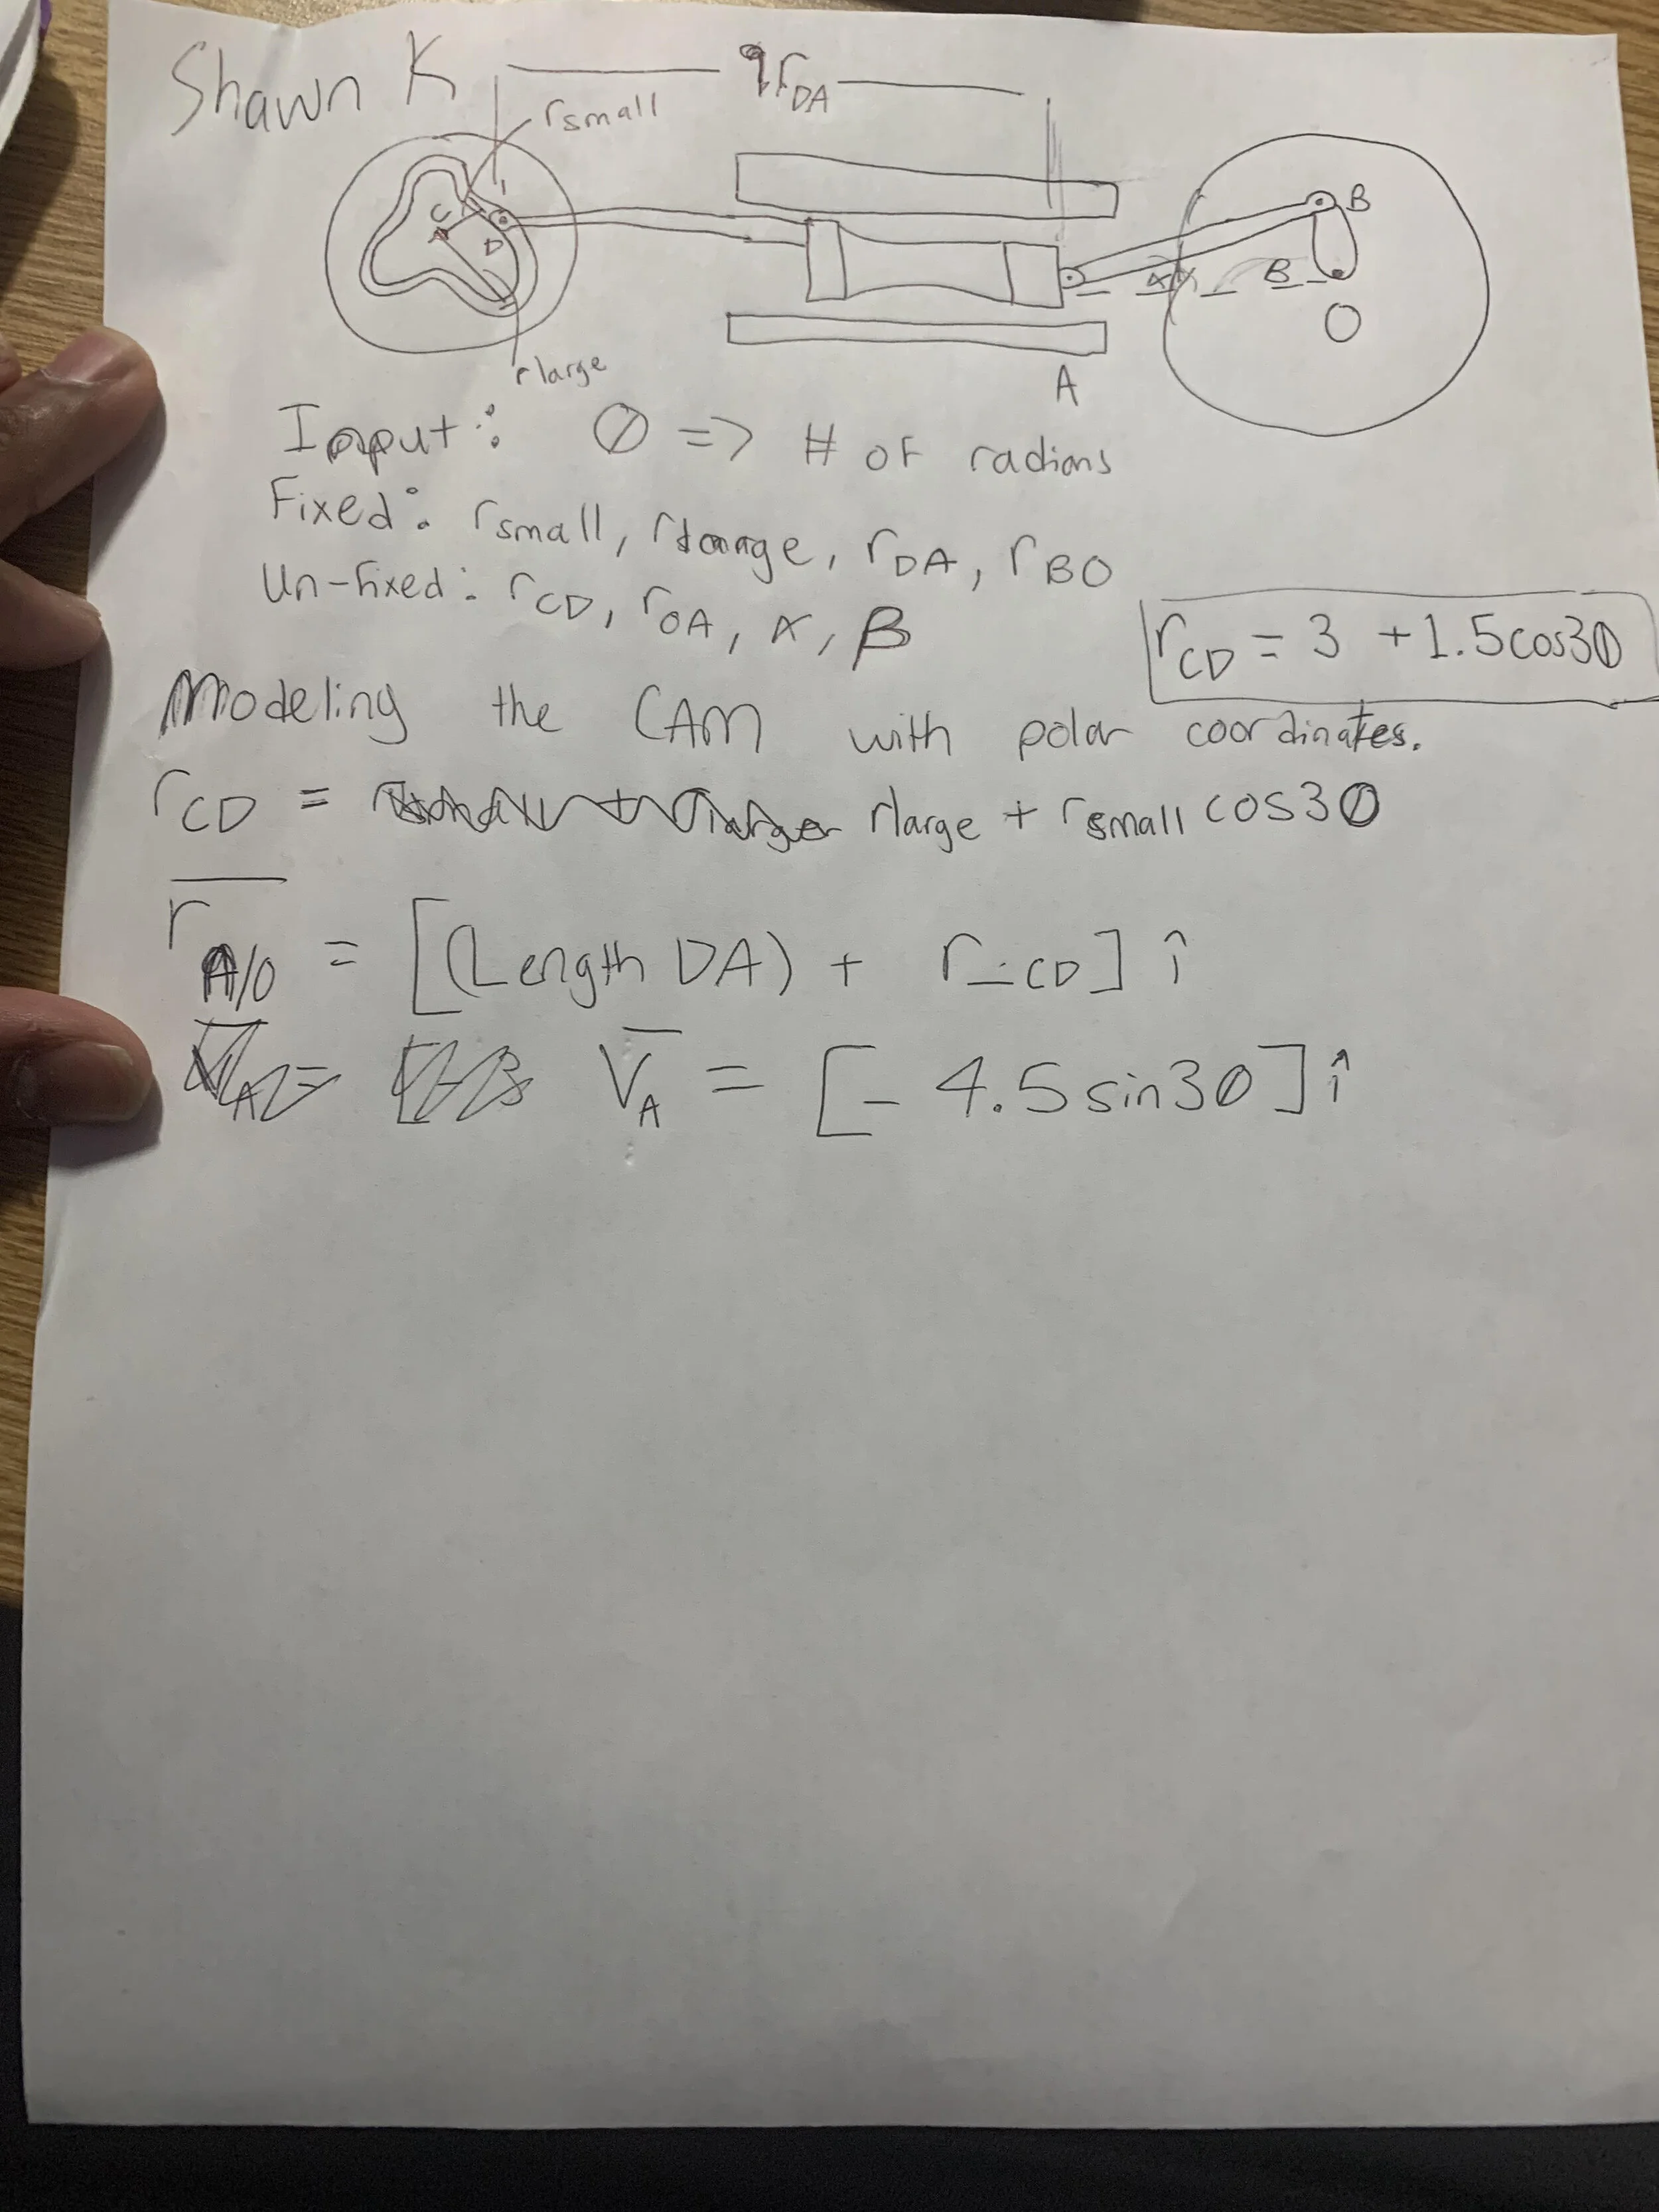 Shawn K
rsmall
rDA
C
D
B
α
B
O
rlarge
A
Input: θ => # of radians
Fixed: rsmall, rlarge, rDA, rBO
Un-fixed: rCD, rOA, α, β
rCD = 3 + 1.5cos3θ
Modeling the CAM with polar coordinates.
rCD = rlarge + rsmall cos3θ
r A/O = [(Length DA) + r_CD] î
VA = [- 4.5sin3θ] î